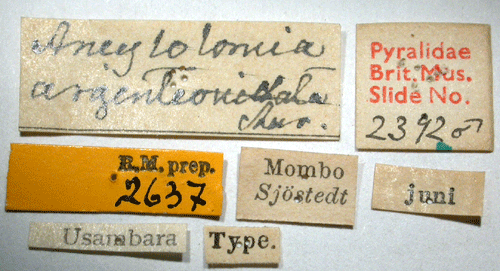 Ancylolomia
argenteovittata
Aur.
Pyralidae
Brit. Mus.
Slide No.
2392♂
R.M. prep.
2637
Mombo
Sjöstedt
juni
Usambara
Type.